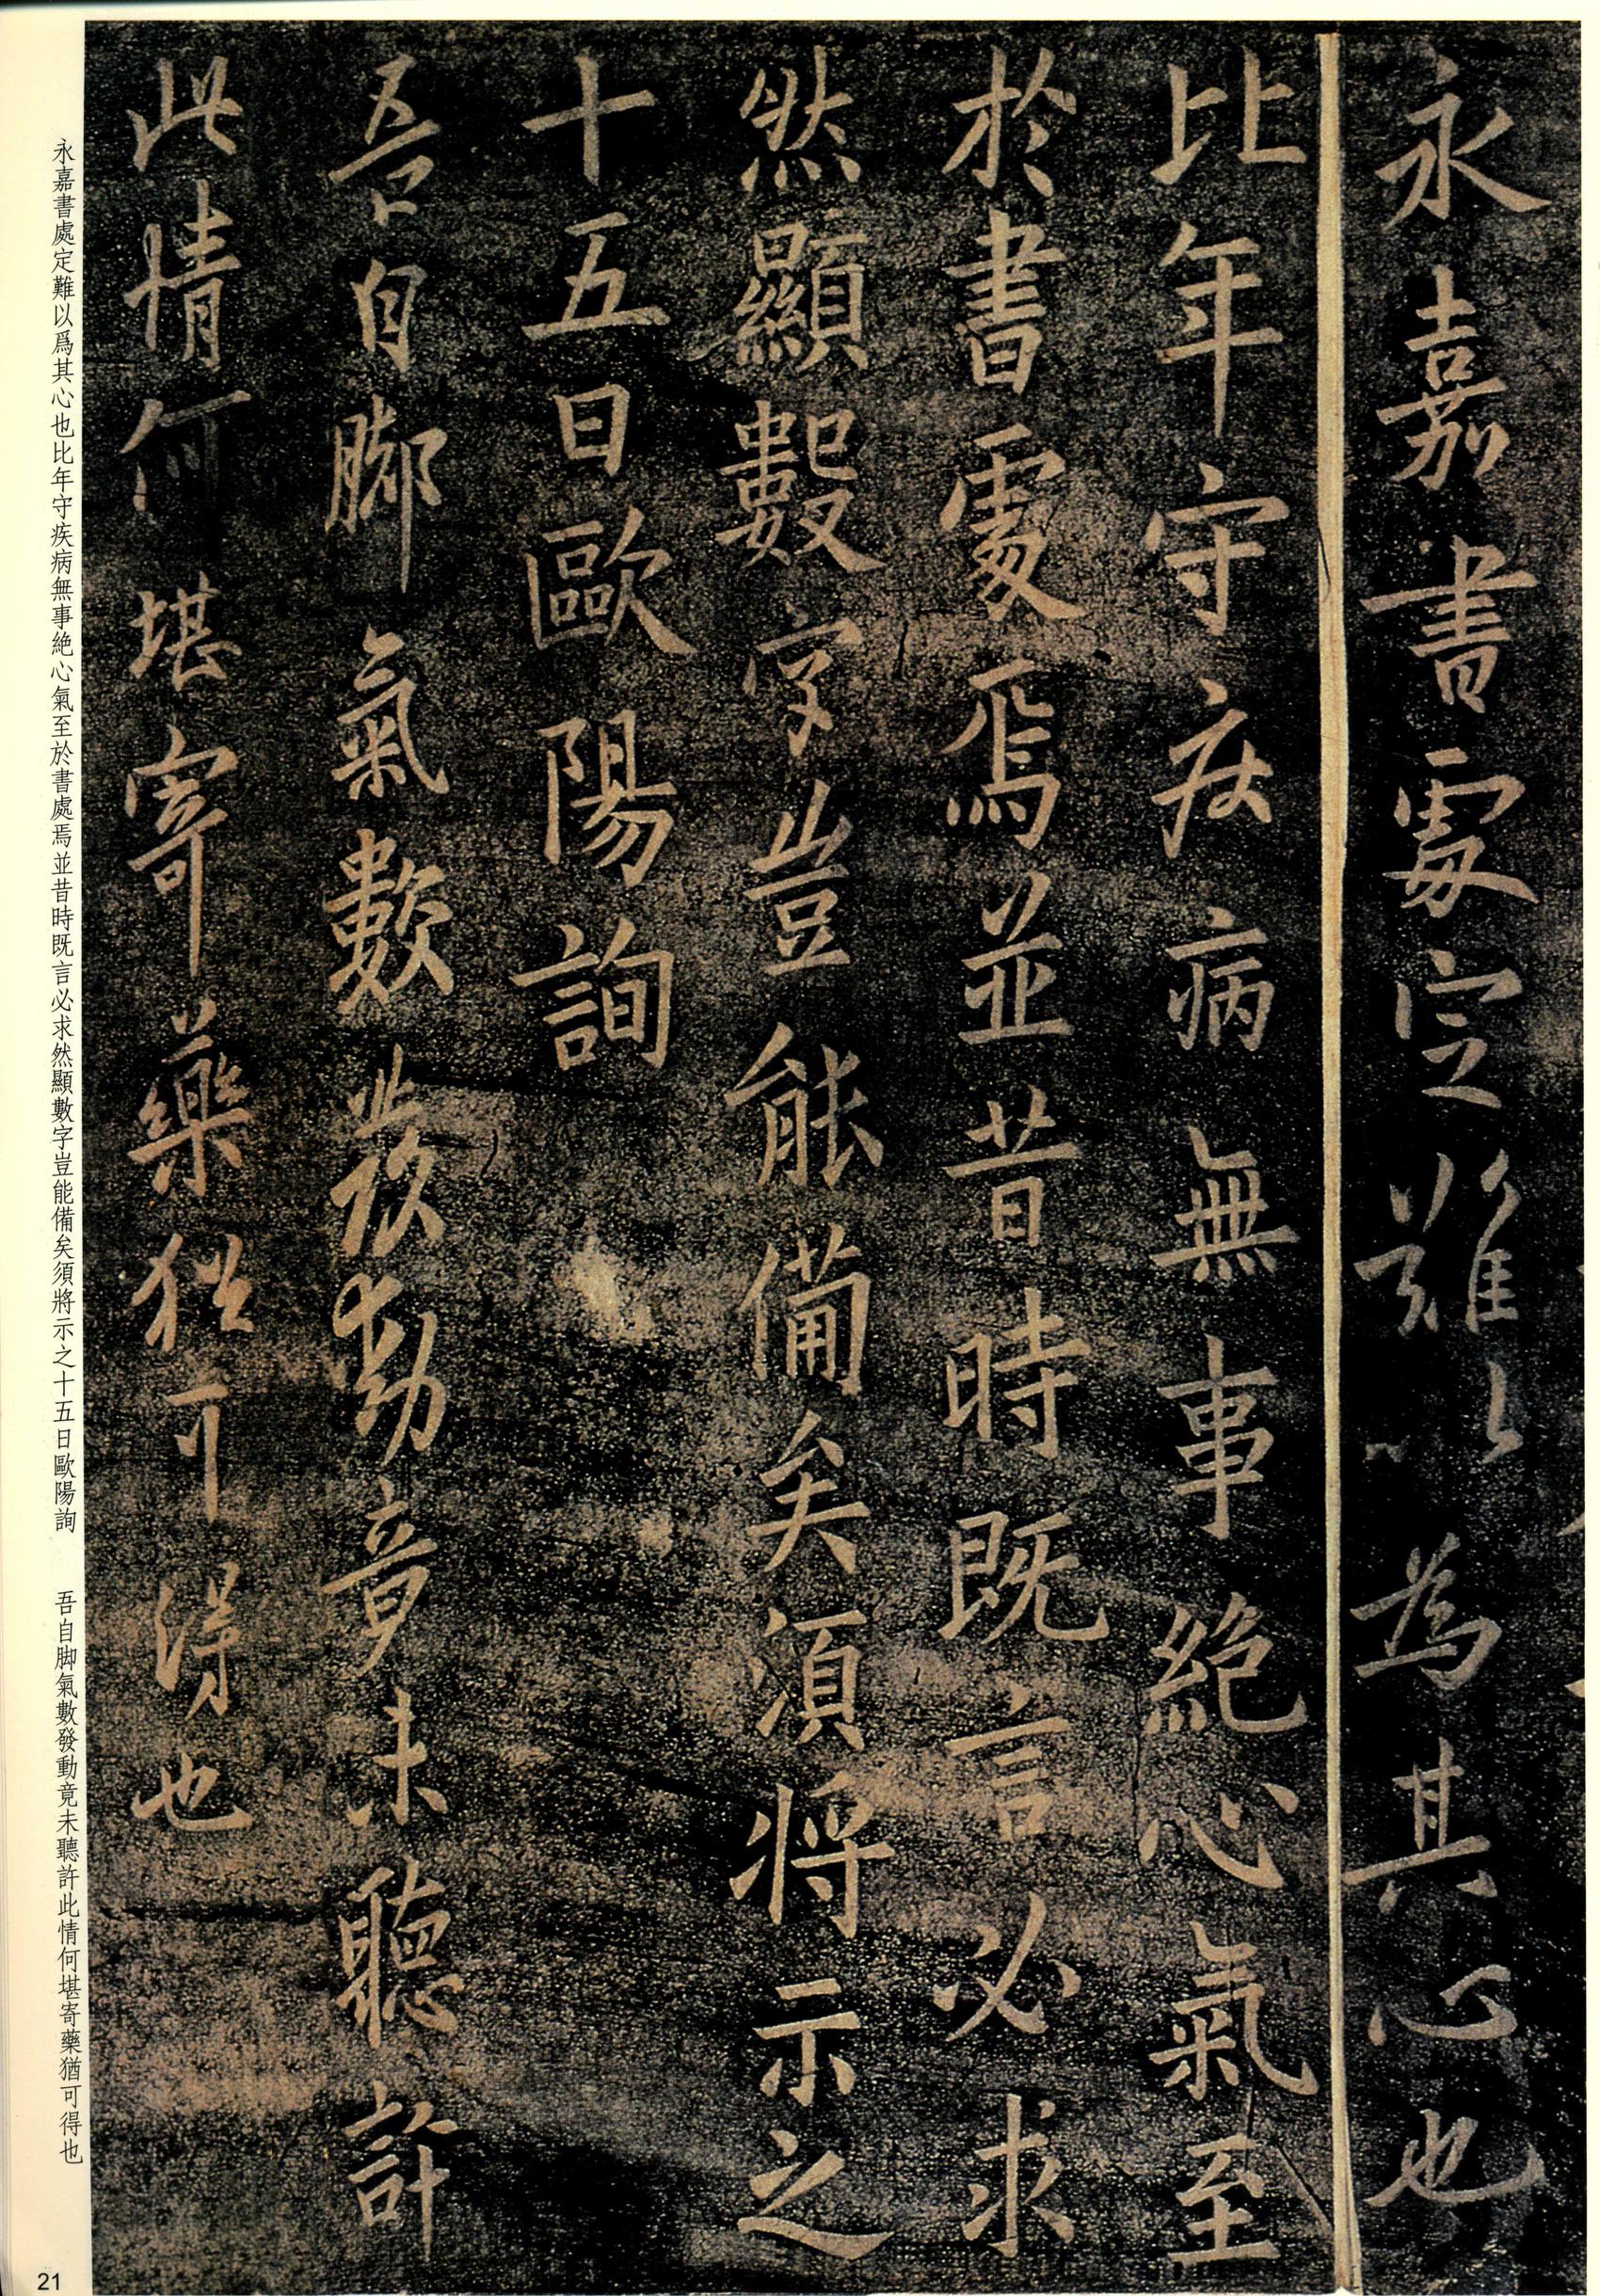 永嘉書處定難以為其心也
比年守疾病無事絶心氣至
於書處焉並昔時既言必求
然顯數字豈能備矣須將示之
十五日歐陽詢
吾自脚氣數發動竟未聽許
此情何堪寄藥猶可得也
永嘉書處定難以爲其心也比年守疾病無事絶心氣至於書處焉並昔時既言必求然顯數字豈能備矣須將示之十五日歐陽詢
吾自脚氣數發動竟未聽許此情何堪寄藥猶可得也
21